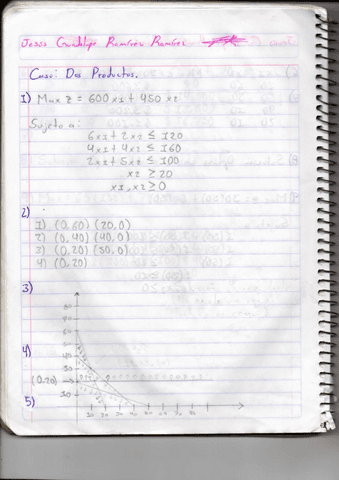 Jesos Guadalupe Ramírez Ramírez
Caso: Dos Productos.
1) Max z = 600x1 + 450 x2
Sujeto a:
6x1 + 2x2 ≤ 120
4x1 + 4x2 ≤ 160
2x2 + 5x2 ≤ 100
x2 ≥ 20
x1, x2 ≥ 0
2)
1) (0,60) (20,0)
2) (0,40) (40,0)
3) (0,20) (50,0)
4) (0,20)
3)
80
70
60
4) 50
40
30
(0,20)
10
5) 10 20 30 40 50 60 70 80